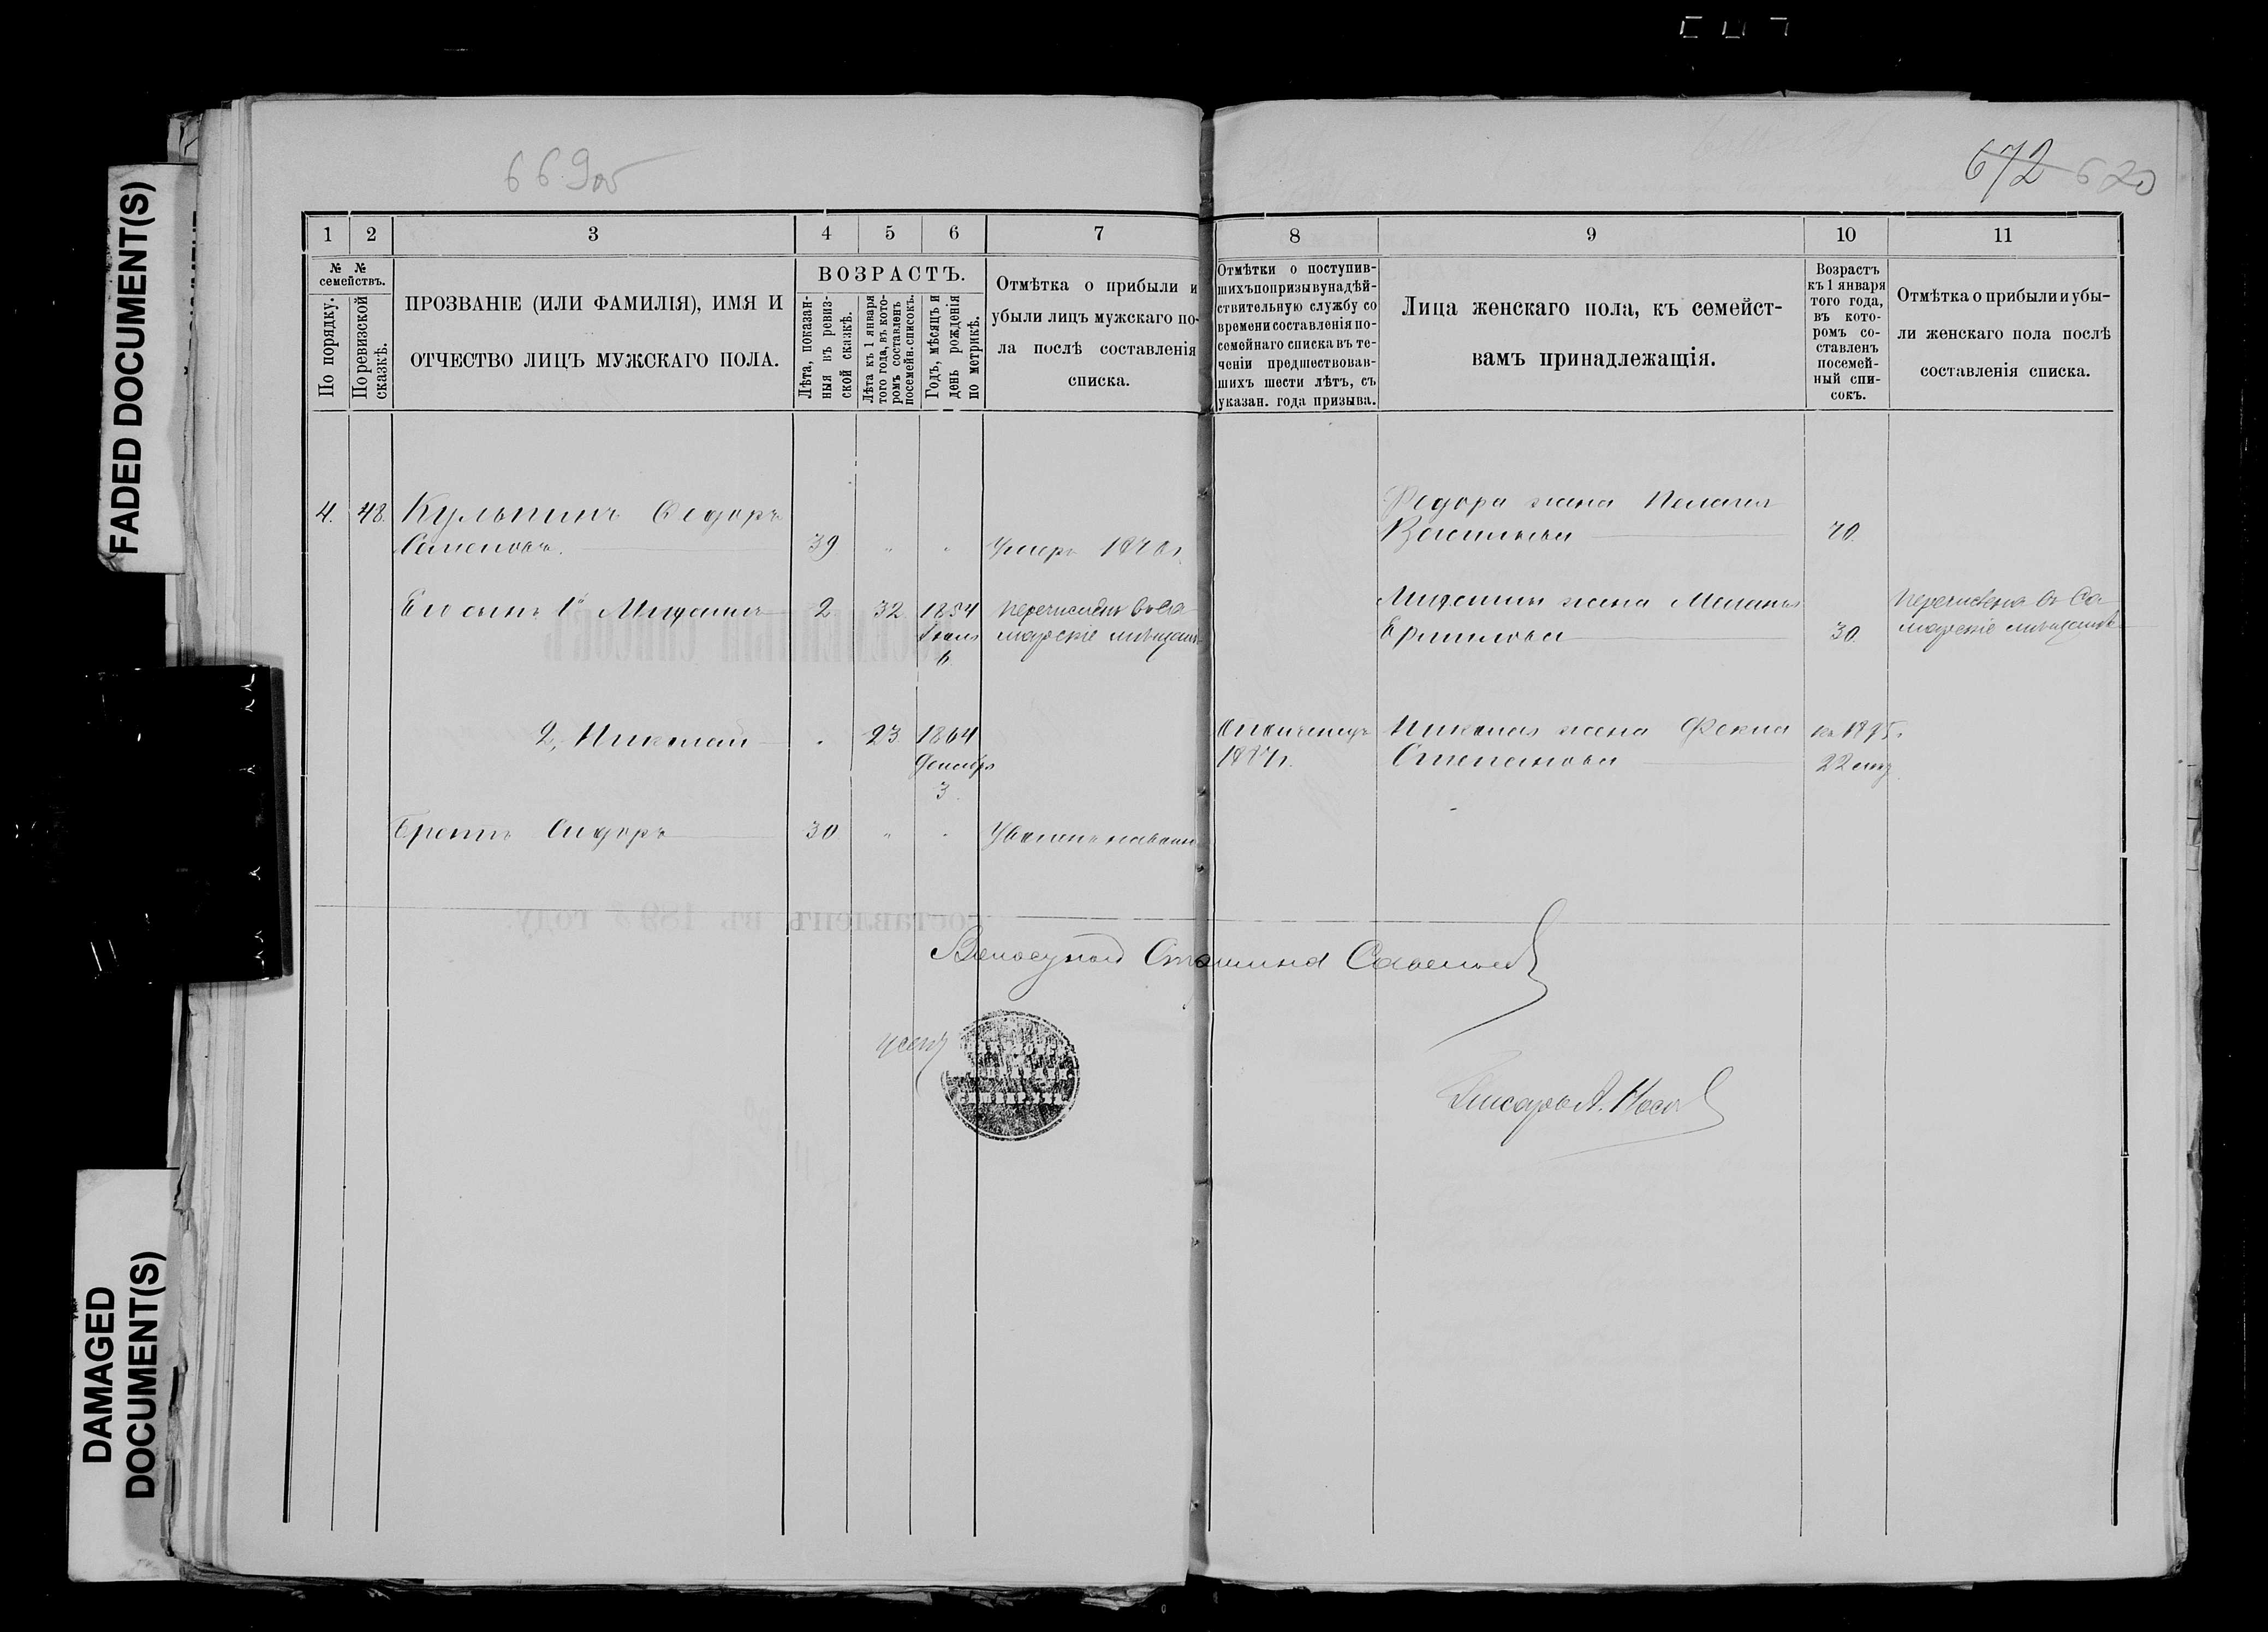 FADED DOCUMENT(S)
DAMAGED
DOCUMENT(S)
669об
672 670
1 2 3 4 5 6 7 8 9 10 11
№ № семействъ.
По порядку.
По ревизской сказкѣ.
ПРОЗВАНІЕ (ИЛИ ФАМИЛІЯ), ИМЯ И
ОТЧЕСТВО ЛИЦЪ МУЖСКАГО ПОЛА.
ВОЗРАСТЪ.
Лѣта, показан-
ныя въ ревиз-
ской сказкѣ.
Лѣта къ 1 января
того года, въ кото-
ромъ составленъ
посемейн. списокъ.
Годъ, мѣсяцъ и
день рожденія
по метрикѣ.
Отмѣтка о прибыли и
убыли лицъ мужскаго по-
ла послѣ составленія
списка.
Отмѣтки о поступив-
шихъ по призыву на дѣй-
ствительную службу со
времени составленія по-
семейнаго списка въ те-
ченіи предшествовав-
шихъ шести лѣтъ, съ
указан. года призыва.
Лица женскаго пола, къ семейст-
вамъ принадлежащія.
Возрастъ
къ 1 января
того года,
въ кото-
ромъ со-
ставленъ
посемей-
ный спи-
сокъ.
Отмѣтка о прибыли и убы-
ли женскаго пола послѣ
составленія списка.
4. 48. Кульпинъ Федоръ
Семеновъ. 39 " " Умеръ
Федора жена Пелагея
Васильева 70.
Его сынъ 1й 2 32 1854 Перечисленъ въ Са-
марскіе мѣщане
6
жена Меланья
Ермилова 30.
Перечислена въ Са-
марскіе мѣщане
2, Николай " 23 1864
Декабря
3
Ополченецъ
1887г.
Николая жена Фекла
Степанова
къ 1895г.
22
Братъ Сидоръ 30 " "
составленъ въ 189 году.
Старшина Савельев
Писарь А. Носов